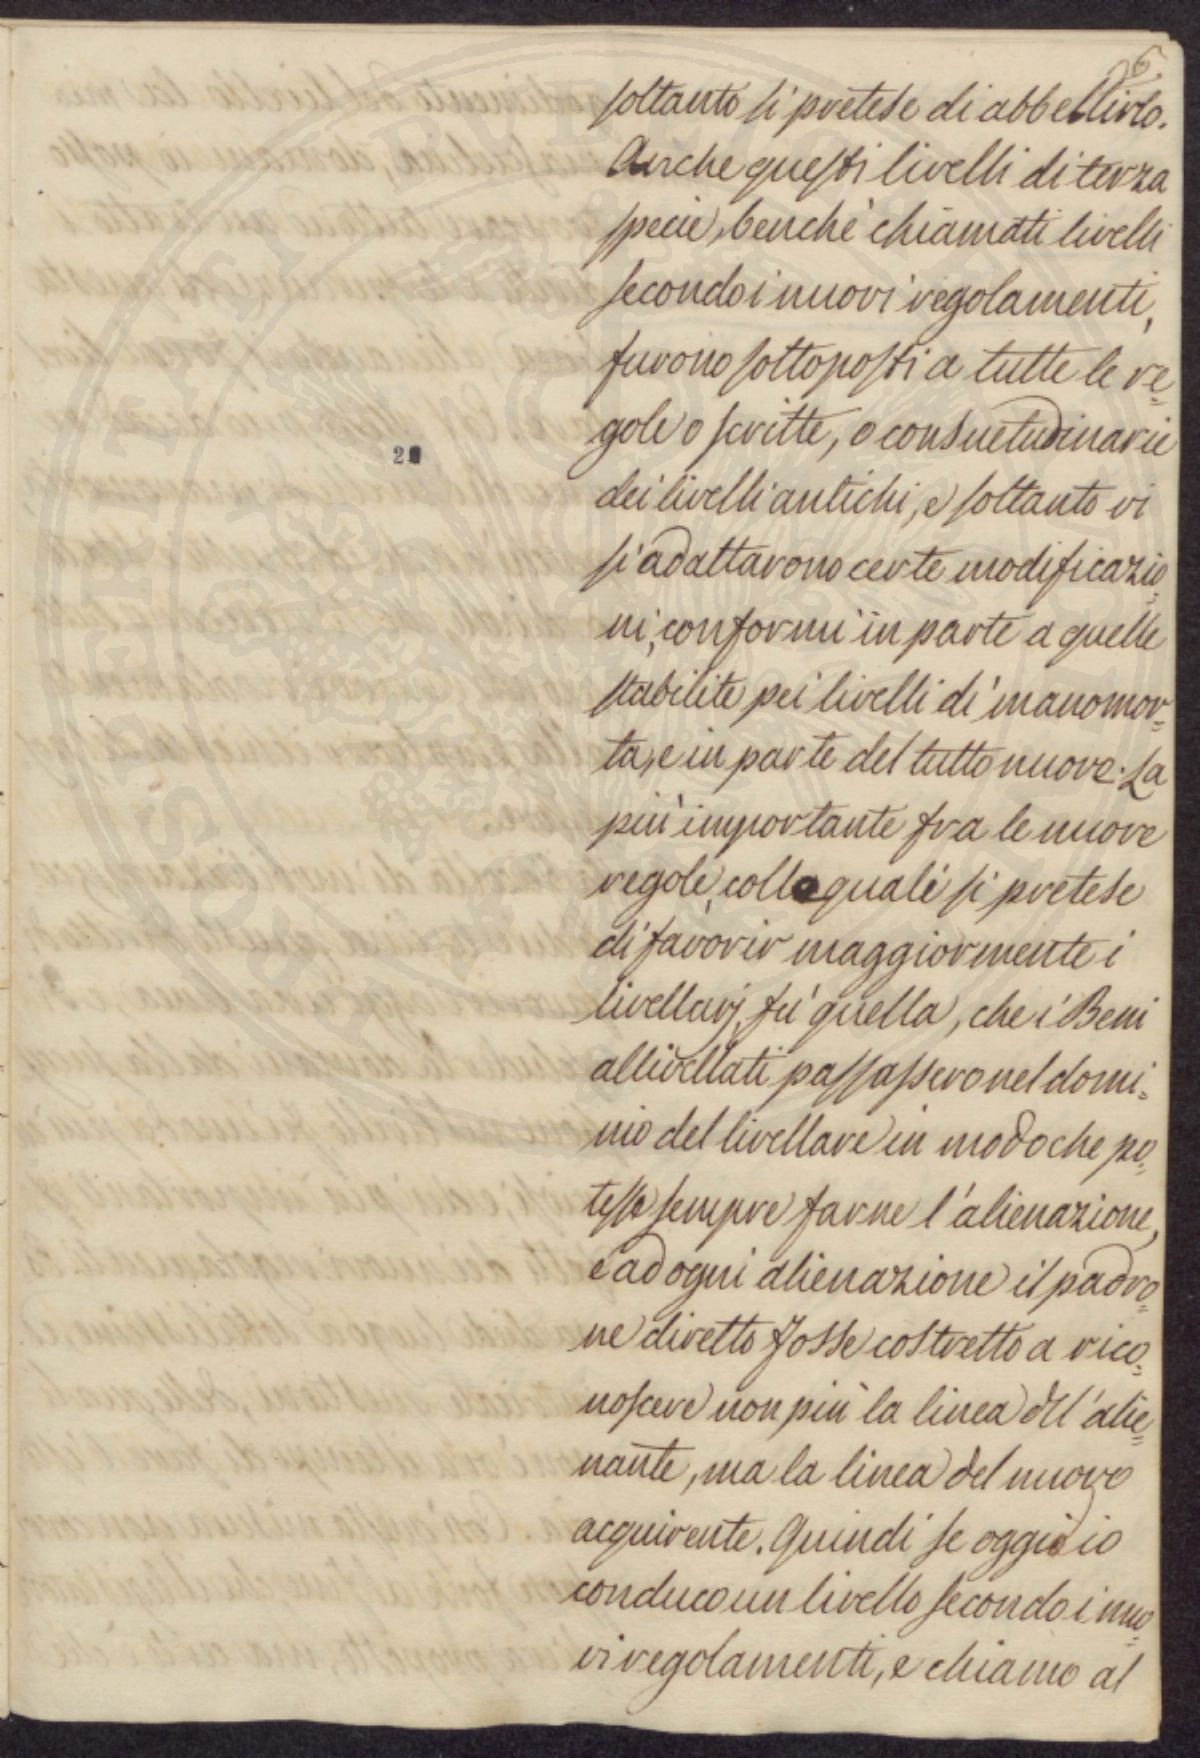 6
soltanto si pretese di abbellirlo.
Anche questi livelli di terza
specie, benchè chiamati livelli
secondo i nuovi regolamenti,
furono sottoposti a tutte le re=
gole o scritte, o consuetudinarie
28
dei livelli antichi, e soltanto vi
si adattarono certe modificazio=
ni, conformi in parte a quelle
stabilite pei livelli di manomor=
ta, e in parte del tutto nuove. La
più importante fra le nuove
regole, colle quali si pretese
di favorir maggiormente i
livellarj, fù quella, che i Beni
allivellati passassero nel domi=
nio del livellare in modo che po=
tesse sempre farne l'alienazione,
e ad ogni alienazione il padro=
ne diretto fosse costretto a rico=
noscere non più la linea dell'alie=
nante, ma la linea del nuovo
acquirente. Quindi se oggi io
conduco un livello secondo i nuo=
vi regolamenti, e chiamo al